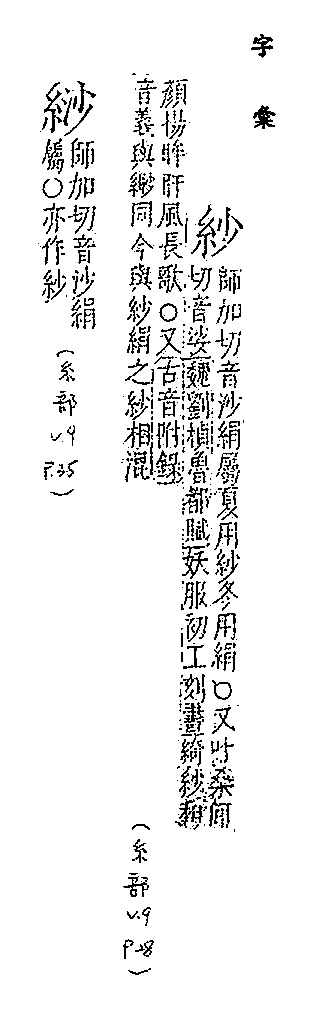 字彙
紗
師加切音沙絹屬夏用紗冬用絹○又叶桑何
切音娑魏劉楨魯都賦妖服初工刻畫綺紗
顏揚眸肝風長歌○又古音附錄
音義與緲同今與紗絹之紗相混
(糸部
v.9
P.28)
䋾
師加切音沙絹
屬○亦作紗
(糸部
v.9
P.35)